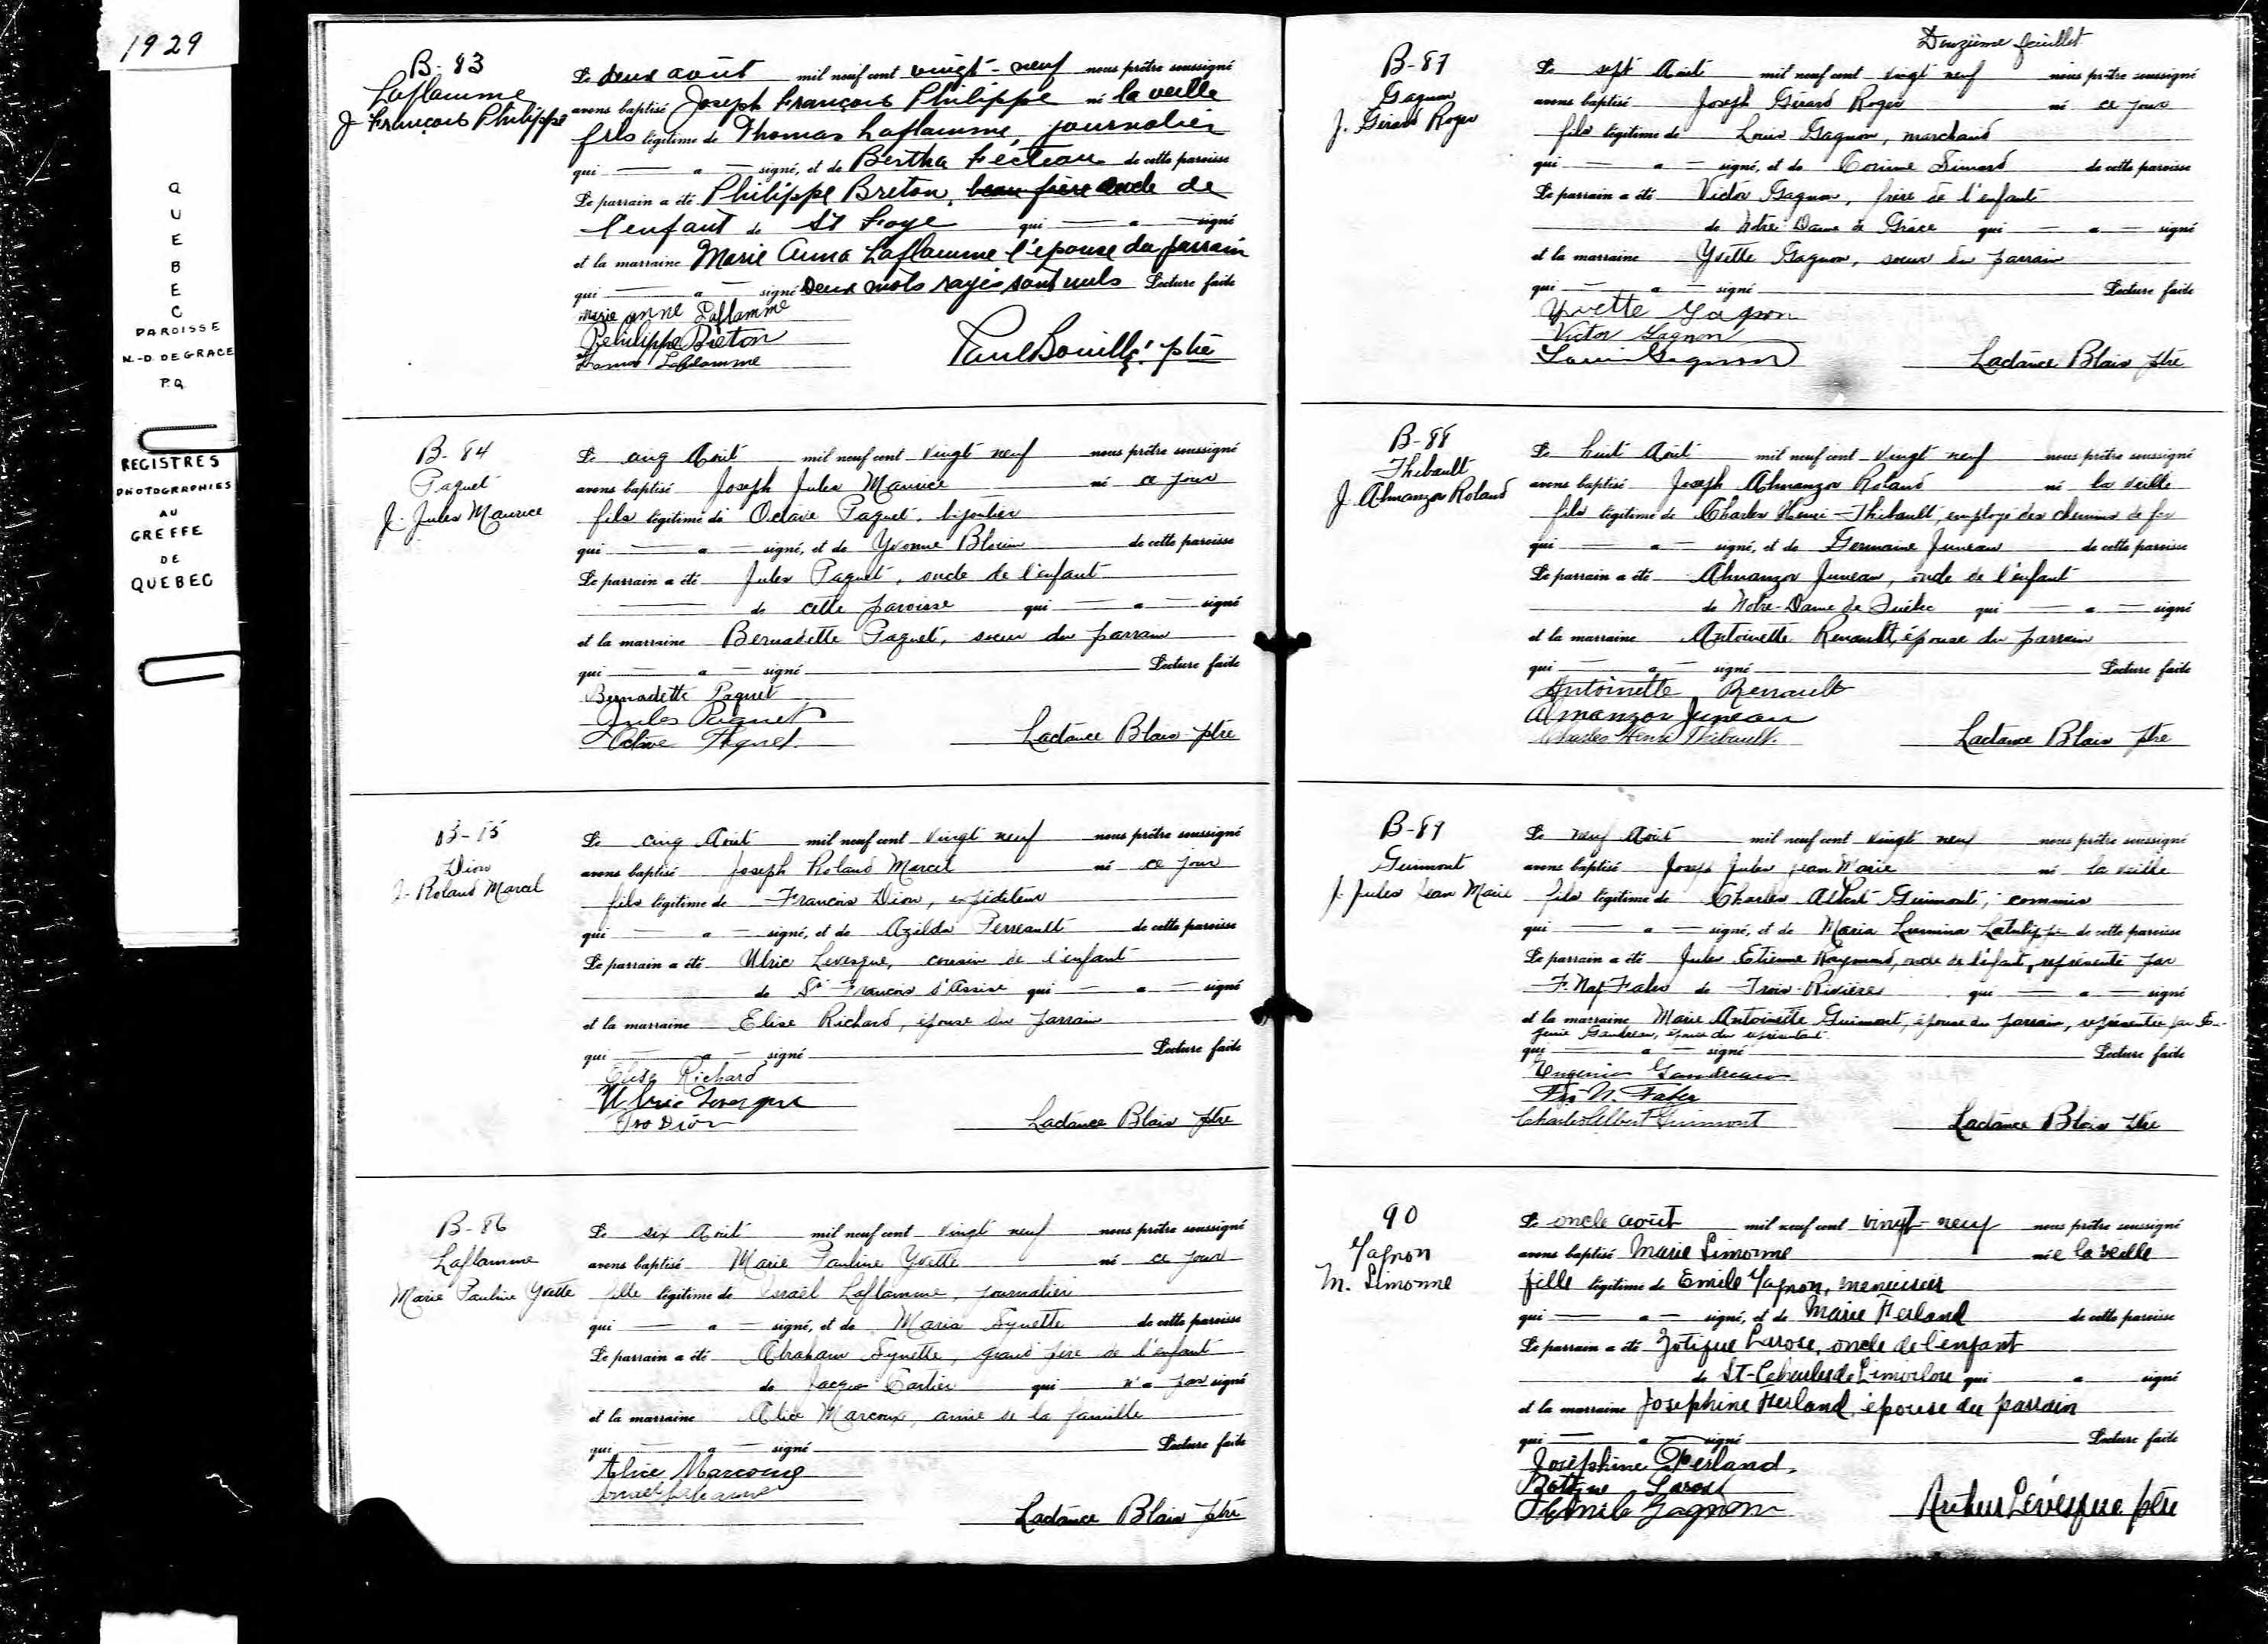 1929
QUEBEC
PAROISSE
N.-D. DE GRACE
P.Q.
REGISTRES
PHOTOGRAPHIES
AU
GREFFE
DE
QUEBEC
B-83
Laflamme
J François Philippe
Le deux août mil neuf cent vingt-neuf nous prêtre soussigné
avons baptisé Joseph François Philippe né la veille
fils légitime de Thomas Laflamme, journalier
qui — a — signé, et de Bertha Fecteau de cette paroisse
Le parrain a été Philippe Breton, beau frère oncle de
l'enfant de St Foye qui — a — signé
et la marraine Marie Anna Laflamme l'épouse du parrain
qui — a — signé Deux mots rayés sont nuls Lecture faite
Marie Anne Laflamme
Philippe Breton
Thomas Laflamme
Paul Bouillé ptre
B-84
Paquet
J. Jules Maurice
Le cinq Août mil neuf cent vingt neuf nous prêtre soussigné
avons baptisé Joseph Jules Maurice né ce jour
fils légitime de Octave Paquet, bijoutier
qui — a — signé, et de Yvonne Blouin de cette paroisse
Le parrain a été Jules Paquet, oncle de l'enfant
de cette paroisse qui — a — signé
et la marraine Bernadette Paquet, soeur du parrain
qui — a — signé Lecture faite
Bernadette Paquet
Jules Paquet
Octave Paquet
Lactance Blais ptre
B-85
Dion
J. Roland Marcel
Le cinq Août mil neuf cent vingt neuf nous prêtre soussigné
avons baptisé Joseph Roland Marcel né ce jour
fils légitime de François Dion, expéditeur
qui — a — signé, et de Azilda Perreault de cette paroisse
Le parrain a été Ulric Levesque, cousin de l'enfant
de St François d'Assise qui — a — signé
et la marraine Elise Richard, épouse du parrain
qui — a — signé Lecture faite
Elise Richard
Ulric Levesque
Frs Dion
Lactance Blais ptre
B-86
Laflamme
Marie Pauline Yvette
Le six Août mil neuf cent vingt neuf nous prêtre soussigné
avons baptisé Marie Pauline Yvette né ce jour
fille légitime de Israël Laflamme, journalier
qui — a — signé, et de Maria Synette de cette paroisse
Le parrain a été Abraham Synette, grand père de l'enfant
de Jacques Cartier qui n'a pas signé
et la marraine Alice Marcoux, amie de la famille
qui — a — signé Lecture faite
Alice Marcoux
Israel Laflamme
Lactance Blais ptre
Deuxième feuillet
B-87
Gagnon
J. Gérard Roger
Le sept Août mil neuf cent vingt neuf nous prêtre soussigné
avons baptisé Joseph Gérard Roger né ce jour
fils légitime de Louis Gagnon, marchand
qui — a — signé, et de Corinne Simard de cette paroisse
Le parrain a été Victor Gagnon, frère de l'enfant
de Notre Dame de Grâce qui — a — signé
et la marraine Yvette Gagnon, soeur du parrain
qui — a — signé Lecture faite
Yvette Gagnon
Victor Gagnon
Louis Gagnon
Lactance Blais ptre
B-88
Thibault
J. Almanzor Roland
Le huit Août mil neuf cent vingt neuf nous prêtre soussigné
avons baptisé Joseph Almanzor Roland né la veille
fils légitime de Charles Henri Thibault, employé des chemins de fer
qui — a — signé, et de Germaine Juneau de cette paroisse
Le parrain a été Almanzor Juneau, oncle de l'enfant
de Notre-Dame de Québec qui — a — signé
et la marraine Antoinette Renault, épouse du parrain
qui — a — signé Lecture faite
Antoinette Renault
Almanzor Juneau
Charles Henri Thibault.
Lactance Blais ptre
B-89
Guimont
J. Jules Jean Marie
Le neuf Août mil neuf cent vingt neuf nous prêtre soussigné
avons baptisé Joseph Jules Jean Marie né la veille
fils légitime de Charles Albert Guimont, commis
qui — a — signé, et de Maria Lumina Latulippe de cette paroisse
Le parrain a été Jules Etienne Raymond, oncle de l'enfant, représenté par
F. Nap Faber de Trois-Rivières qui — a — signé
et la marraine Marie Antoinette Guimont, épouse du parrain, représentée par Eu-
génie Gaudreau, épouse du représentant
qui — a — signé Lecture faite
Eugénie Gaudreau
Frs N. Faber
Charles Albert Guimont
Lactance Blais ptre
90
Gagnon
M. Simonne
Le onele août mil neuf cent vingt-neuf nous prêtre soussigné
avons baptisé Marie Simonne née la veille
fille légitime de Emile Gagnon, menuisier
qui — a — signé, et de Marie Ferland de cette paroisse
Le parrain a été Zotique Larose, oncle de l'enfant
de St-Charles de Limoilou qui a signé
et la marraine Josephine Ferland, épouse du parrain
qui — a — signé Lecture faite
Joséphine Ferland.
Zotique Larose
Emile Gagnon
Arthur Lévesque ptre